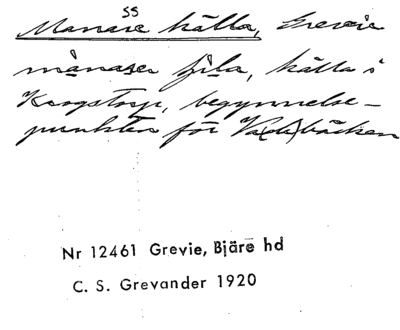 ss
Manase källa, Grevie
månases fila, källa i
Krogstorp, begynnelse-
punkten för Va(de)bäcken
Nr 12461 Grevie, Bjäre hd
C. S. Grevander 1920